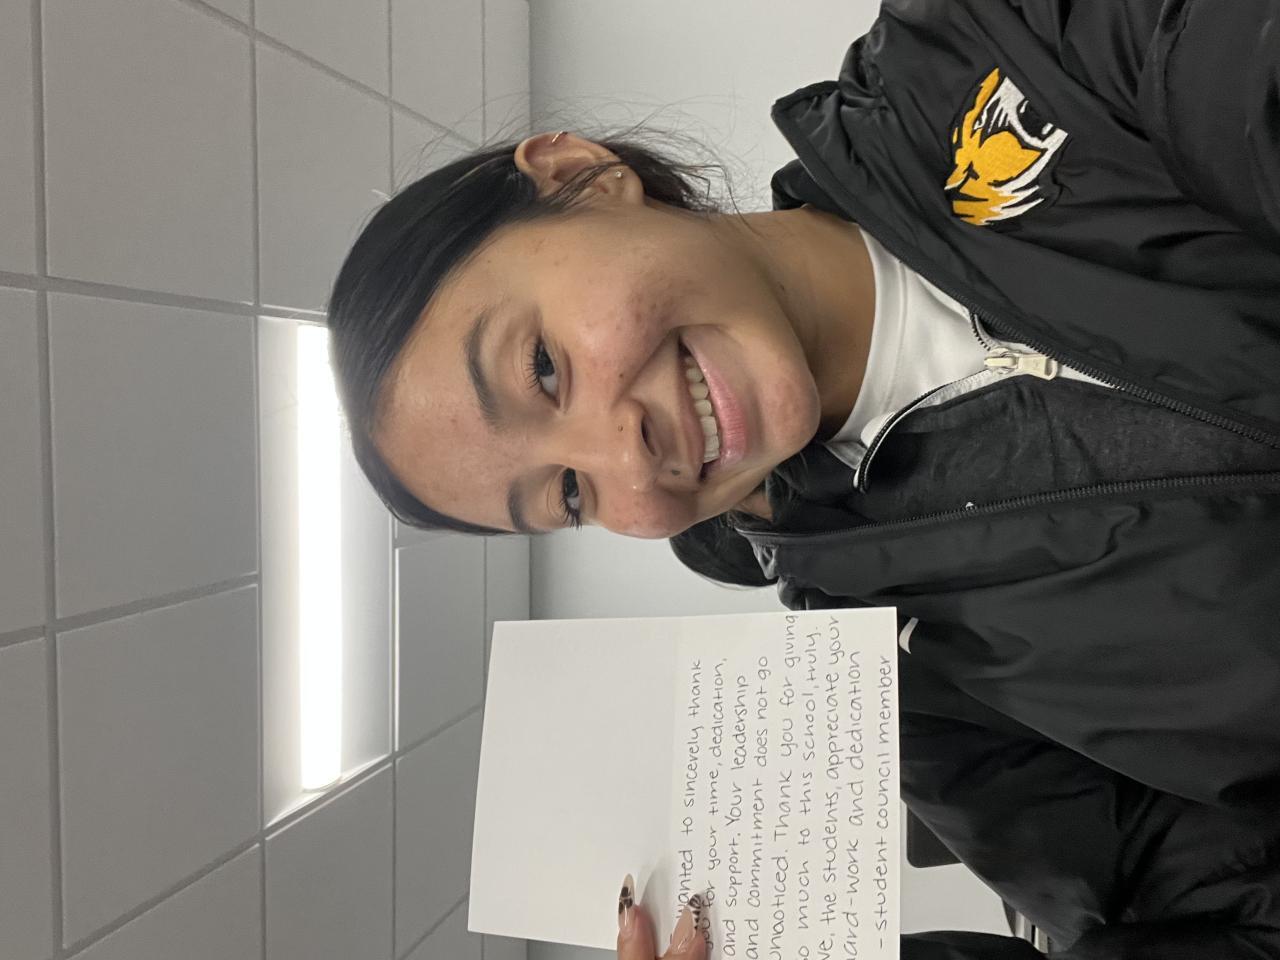 anted to sincerely thank
you for your time, dedication,
and support. Your leadership
and commitment does not go
unnoticed. Thank you for giving
so much to this school, truly.
we, the students, appreciate your
hard-work and dedication
- student council member